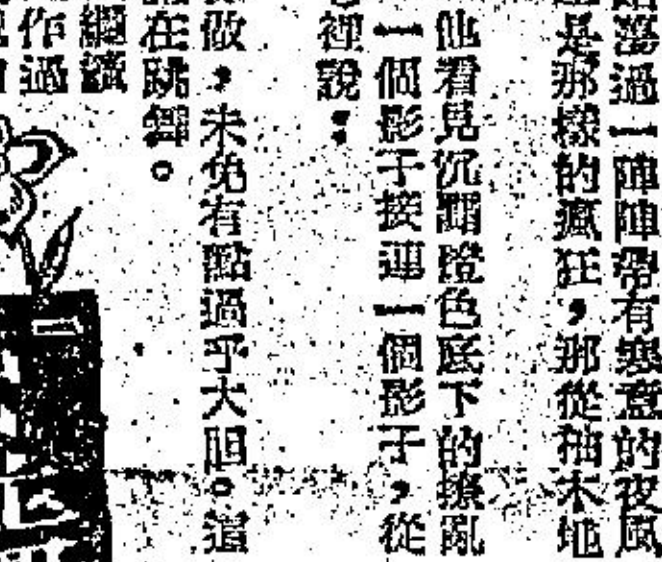 蕩過一陣陣帶有寒意的夜風
是那樣的瘋狂,那從柚木地
他看見沉黯燈色底下的撩亂
一個影子接連一個影子,從
裡說:
做,未免有點過乎大胆。這
在跳舞。
繼續
作過